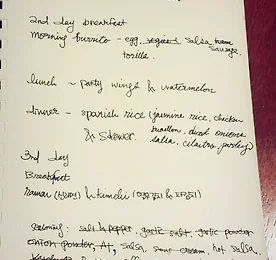 2nd day breakfast
morning burrito - egg, veggies, salsa, sausage,
torilla.
lunch ~ party wings & watermelon
dinner - spanish rice (jasmine rice, chicken
bouillon, diced onions
& skewer. salsa, cilantro, parsley)
3rd day
Breakfast
ramen & kimchi
seasoning: salt & pepper, garlic salt, garlic powder
onion powder, salsa, sour cream, hot salsa.